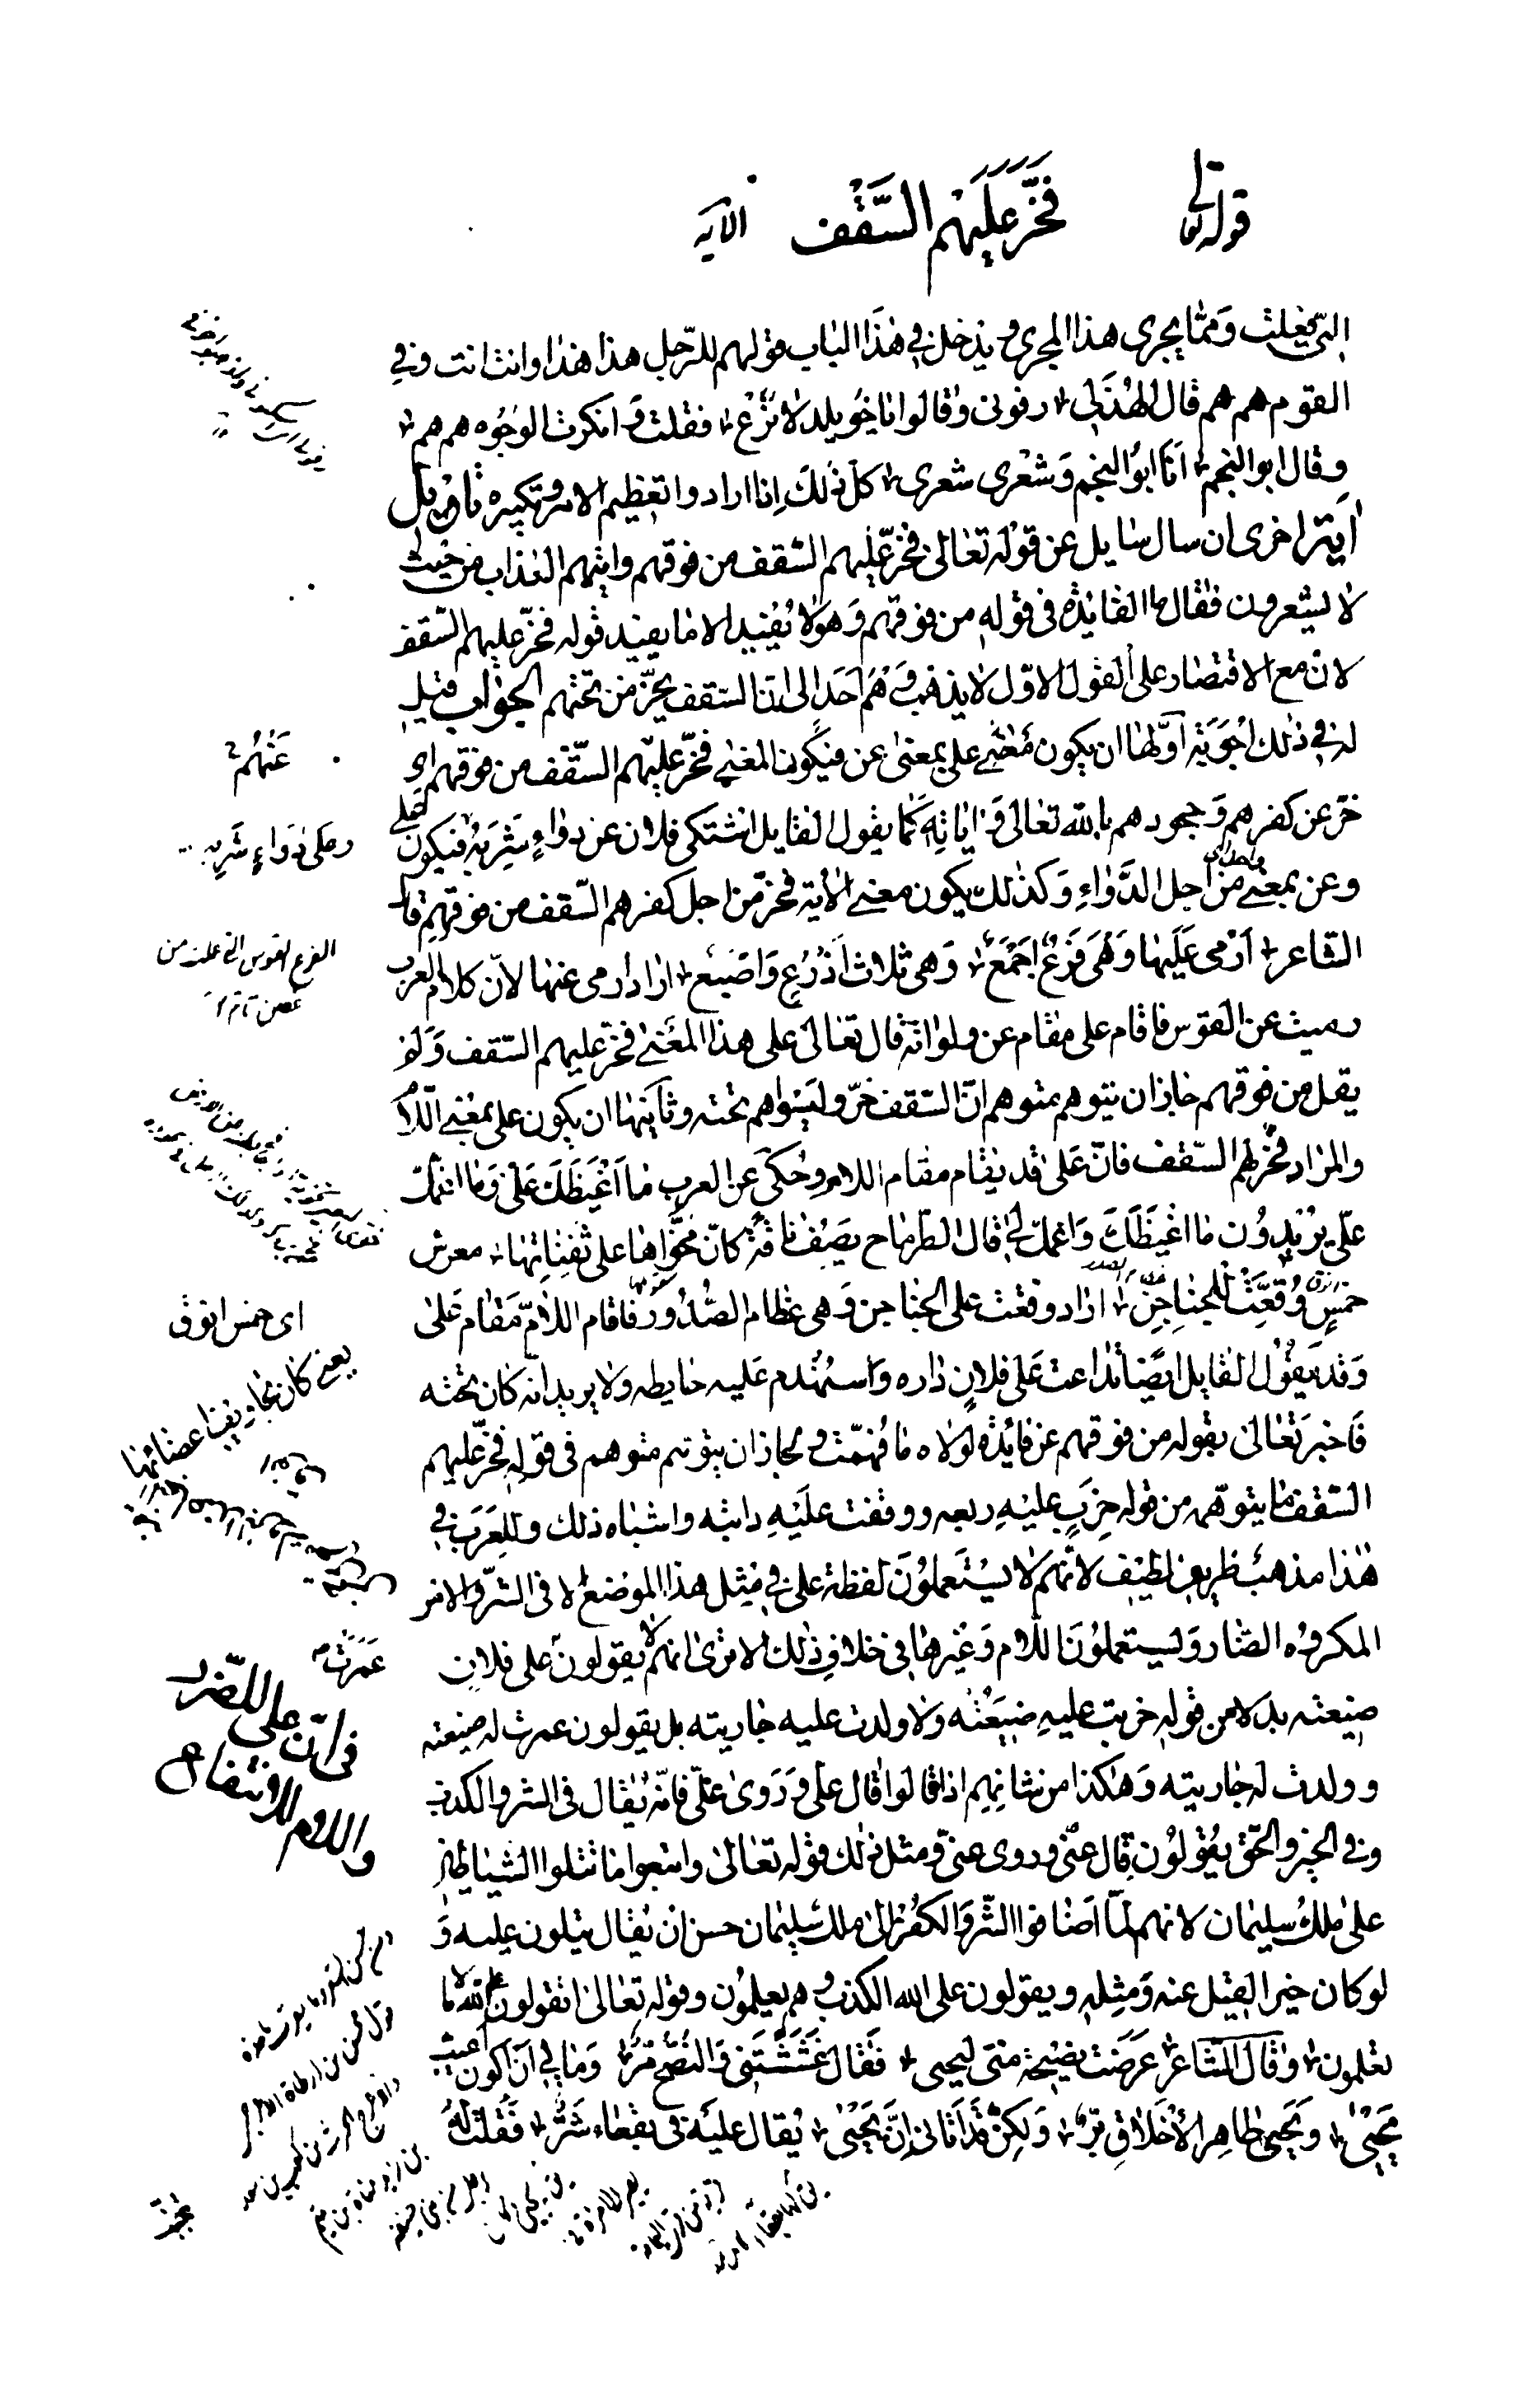 قوله تعالى فَخَرَّ عَلَيْهِمُ السَّقْفُ الآية
التي فعلت وممّا يجرى هذا المجرى ويدخل في هذا الباب قولهم للرّجل هذا هذا وانت انت وفي
القوم هم هم قال الهُذَلي رفوني وقالوا يا خُوَيلد لا تُرَع فقلت وانكرت الوجُوه هم هم
وقال ابو النجم اَنَا ابوُ النجم وَشعْرى شعرى كل ذلك اِنما ارادوا تعظيم الامر وتكبيره تاويل
اٰية اخرى ان سال سايل عن قوله تعالى فخرّ عليهم السّقف من فوقهم واتيهم العذاب من حيث
لا يشعرون فقال ما الفايدة في قوله من فوقهم وَهوَ لا يُفيد الا ما يفيد قوله فخرّ عليهم السّقف
لان مع الاقتصار على القول الاوّل لا يذهب وَهْمُ اَحَد الى انّ السّقف يخرّ من تحتهم الجواب قيل
له في ذلك اجوبَة اَوَّلها ان يكون معنى على بمعنى عن فيكُون المعنى فخرّ عليهم السّقف من فوقهم اى
خرّ عن كفرهم وجحودهم بالله تعالى وَاٰياتِه كما يقول القايل اشتكى فلان عن دواءٍ شَرِبَهُ فيكون على
وعن بمعنى من اجل الدَّواءِ وَكذلك يكون معنى الاٰية فخرّ من اجل كفرهم السّقف من فوقهم قال
الشاعر اَرْمى عَلَيها وَهْىَ فَرْعٌ اَجْمَعُ وَهى ثلاث اَذْرُعٍ وَاصْبَع اراد ارمى عنها لانّ كلام العرب
رميت عن القوس فاقام على مقام عن ولو انّه قال تعالى على هذا المعنى فخرّ عليهم السّقف وَلم
يقل من فوقهم جاز ان يتوهم متوهم انّ السّقف خرّ وليسوا هم تحته وثانيها ان يكون على بمعنى اللّام
والمراد فخرّ لهم السّقف فانّ عَلى قد يقام مقام اللام وحُكى عن العرب ما اَغْيَظَكَ عَلىّ وَما اغمّك
علىّ يُريدُون ما اغيَظَكَ وَاغمّك لى قال الطرماح يصِفُ ناقة كانّ مُخَوّاها على ثَفِناتِها معرس
خمسٍ وُقعَّتْ للجناجِن اراد وقعت على الجناجن وَهى عظام الصُّدُور فاقام اللام مَقام عَلى
وَقد يَقوُل القايل ايضًا تداعت عَلى فلانٍ داره وَاستُهْدم عَليه حايطه ولا يريد انّه كان تحته
فَاخبر تَعالى بقوله من فوقهم عن فايدة لولاه ما فُهِمَت ولجاز ان يتوهّم متوهم في قوله فخرّ عليهم
السّقف ما يتوهّمه من قوله خرِبَ عليهِ ربعه ووقفت عَليهِ دابته واشباه ذلك وللعَرَب في
هٰذا مذهبٌ ظريف لطيف لانّهم لا يستعملوُنَ لفظة على في مثِل هذا الموضع الا في الشرّ والامر
المكروُه الضّار وَيستعملوُنَ اللّام وَغيرها في خلاف ذلك الا ترى انهم لا يقولون على فلانٍ
ضيعته بدلا من قوله خربت عليهِ ضيعَتُه وَلا ولدت عليه جاريته بل يقولون عمرت له ضيعته
وولدت له جاريته وَهٰكذا من شانِهِم اذا قالوا قال علىّ وَرَوىٰ علىّ فانّه يُقال في الشر والكذب
وفي الخير والحقّ يقُولوُن قال عنّى وروى عنىّ ومثل ذلك قوله تعالى واتبعوا ما تتلوا الشياطين
على مُلك سليمان لانهم لمّا اَضافوا الشّر وَالكفر الى ملك سُليمان حسن ان يُقال يتلون عليه وَ
لو كان خيرا لقيل عنه وَمثِله ويقولون على الله الكذب وهم يعلموُن وقوله تعالى اتقولون على الله ما لا
تعلمون وَقال الشّاعر عَرَضت نصيحة منّى ليحيى فَقال غَشَشْتَنى وَالنُصْح مُرُّ وَما بى اَنْ اكُون اَعيب
يَحيى وَيَحيى طاهر الاَخلاق بَرّ وَلكِنْ قد اَتانى اِنَّ يَحْيى يُقال عليه في بقعاء شَرُّ فَقُلت لهُ
عَنْهُم
وحكى دَواءٍ شَرِبه
الفرع القوس التى عملت من
غصن
اى خمس انوق
يعنى كان تجاويف اعضائها
عَمَرَتْ
فى انّ على للضرر
واللام للانتفاع
تجنّب